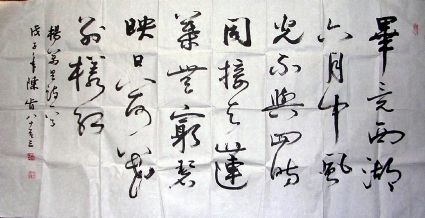 畢竟西湖
六月中風
光不與四時
同接天蓮
葉無窮碧
映日荷花
別樣紅
楊萬里詩
戊子年陳 八十 三